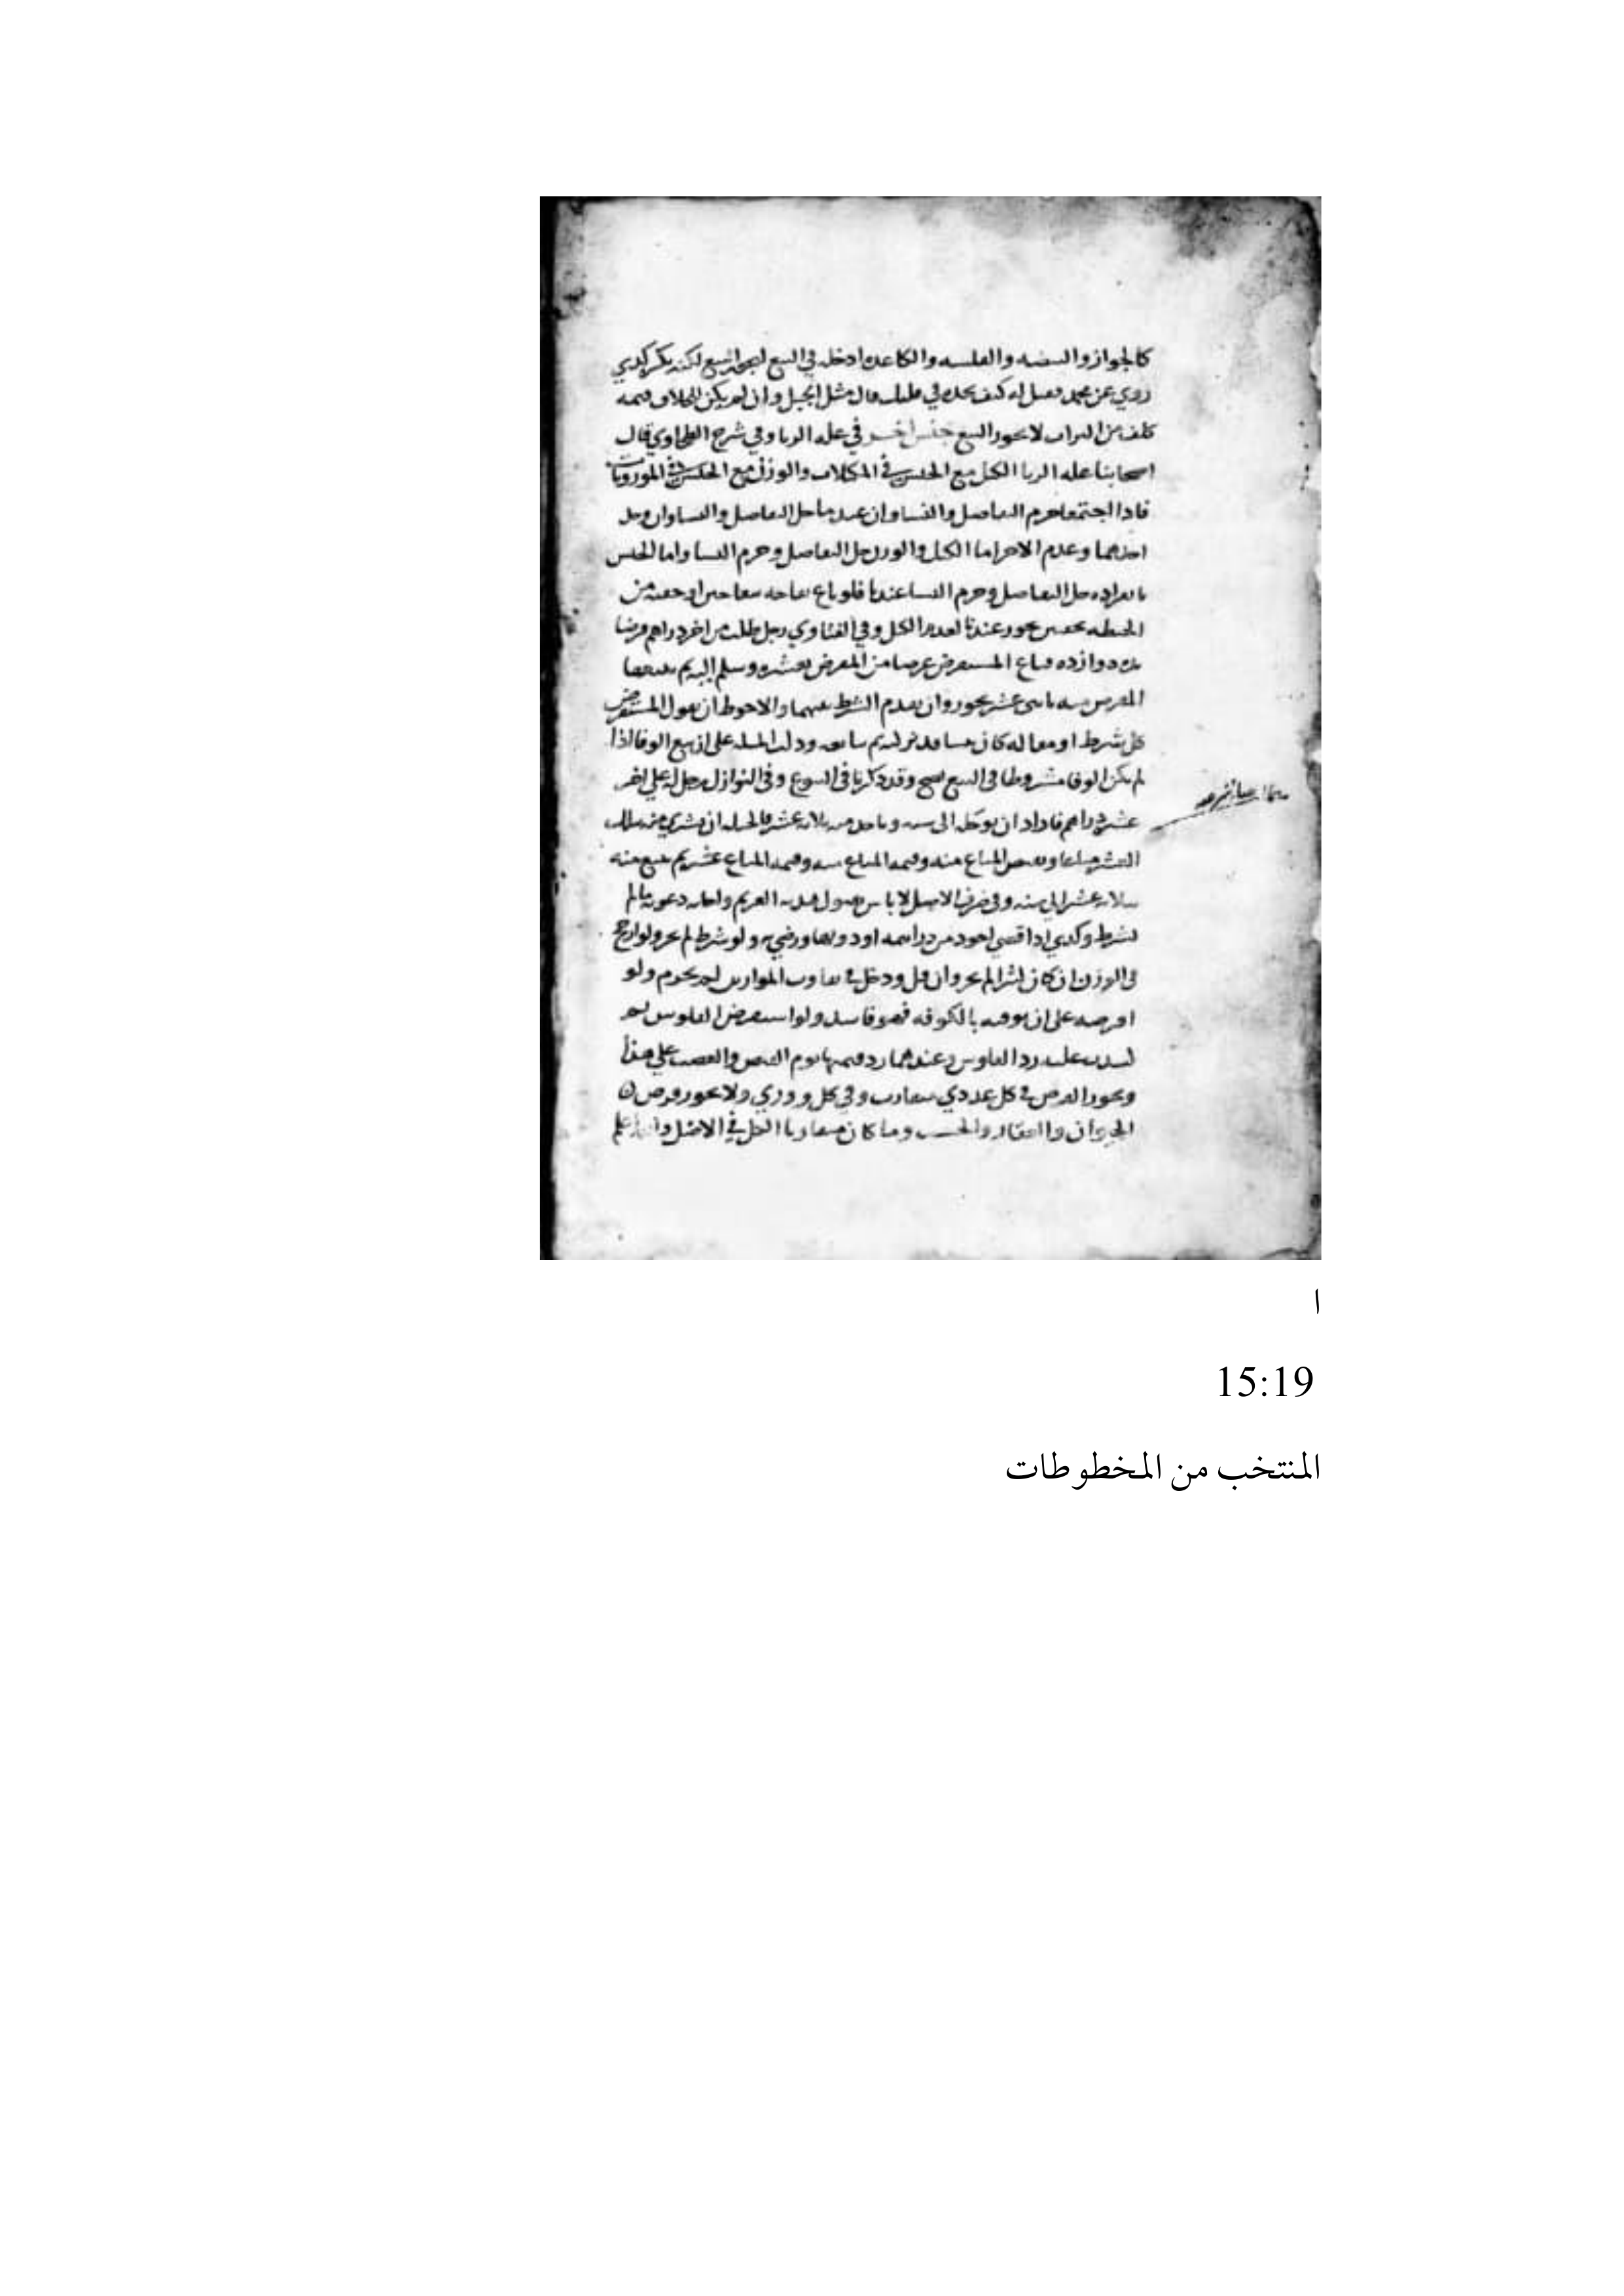 كالجواز والبيضه والفلسه والكاعده ادخله في البيع لكنه يكره كدي
روي عن محمد فقيل له كيف تجده في قلبك قال مثل الجبل وان لم يكن قيمه
كلف من التراب لا يجوز البيع جنس اخر في عله الربا وفي شرح الطحاوي قال
اصحابنا عله الربا الكيل مع الجنس في المكيلات والوزن مع الجنس في الموزونات
فاذا اجتمعا حرم التفاضل والنسا وان عدما حل التفاضل والنسا وان وجد
احدهما وعدم الاخر اما الكيل والوزن حل التفاضل وحرم النسا واما الجنس
بانفراده حل التفاضل وحرم النسا عندنا فلو باع تفاحه بتفاحتين او حفنه من
الحنطه بحفنتين يجوز عندنا لعدم الكيل وفي الفتاوي رجل طلب من اخر دراهم قرضا
ده دوازده فباع المستقرض عرضا من المقرض بعشره وسلم اليه ثم
المقرض منه باثنى عشر يجوز وان تقدم الشرط بينهما والاحوط ان يقول المستقرض
كل شرط او مقاله كان بيننا قد تركته ثم ودلت المسله على ان بيع الوفا اذا
لم يكن الوفا مشروطا في البيع صح وقد ذكرنا في البيوع وفي النوازل رجل له علي اخر
عشره دراهم فاراد ان يوجله الى سنه وياخذ منه ثلاثه عشر فالحيله ان يشتري منه بتلك
العشره متاعا ويقبض المتاع منه وقيمه المتاع عشره ثم يبيع منه
بثلاثه عشر الي سنه وفي الاصل لا باس بقبول هديه الغريم واجابه دعوته ما لم
يشرط وكدي اذا قضي اجود من دراهمه او دونها ورضي به ولو شرط لم يجز ولو ارجح
في الوزن ان كان كثيرا لم يجز وان قل ودخل في تفاوت الموازين لم يحرم ولو
اقرضه على ان يوفيه بالكوفه فهو فاسد ولو استقرض الفلوس ثم
كسدت عليه رد الفلوس وعندهما رد قيمتها يوم القبض والغصب علي هذا
ويجوز القرض في كل عددي متقارب وفي كل ووزني ولا يجوز قرض
الحيوان والعقار والخشب وما كان متفاوتا الكل في الاصل والله اعلم
ا
15:19
المنتخب من المخطوطات